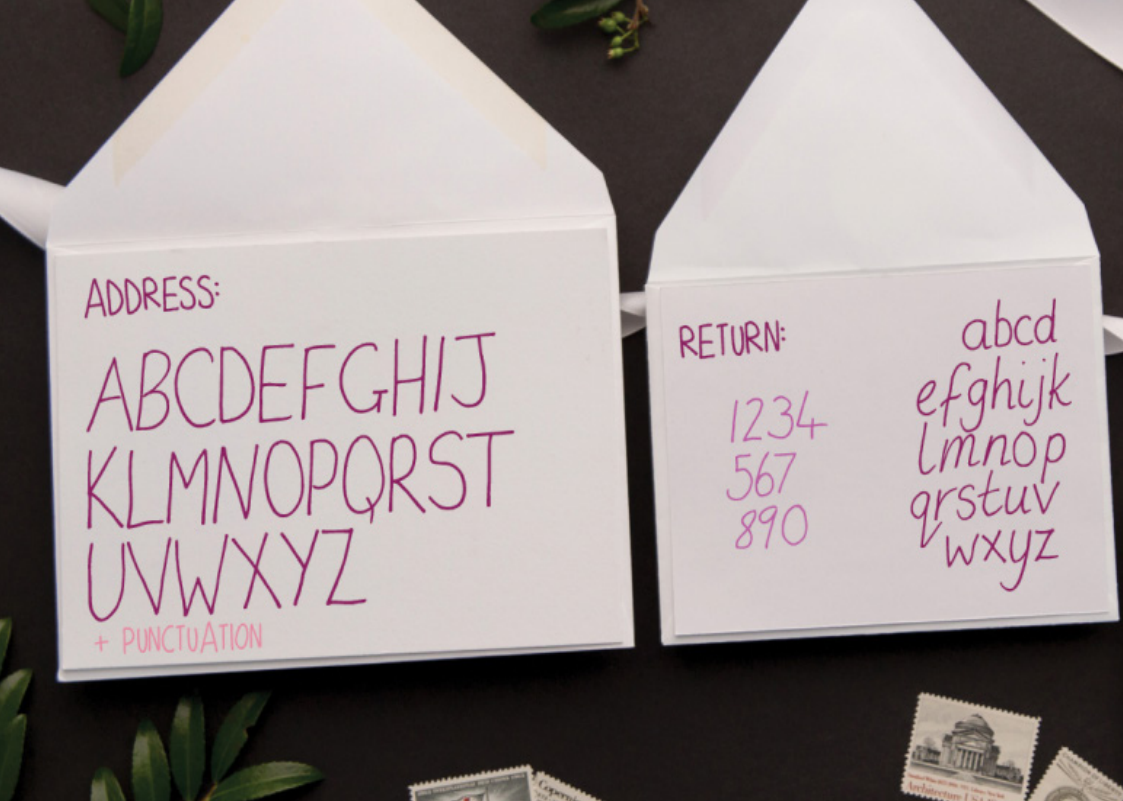 ADDRESS:
ABCDEFGHIJ
KLMNOPQRST
UVWXYZ
+ PUNCTUATION
RETURN:
1234
567
890
abcd
efghijk
lmnop
qrstuv
wxyz
Architecture